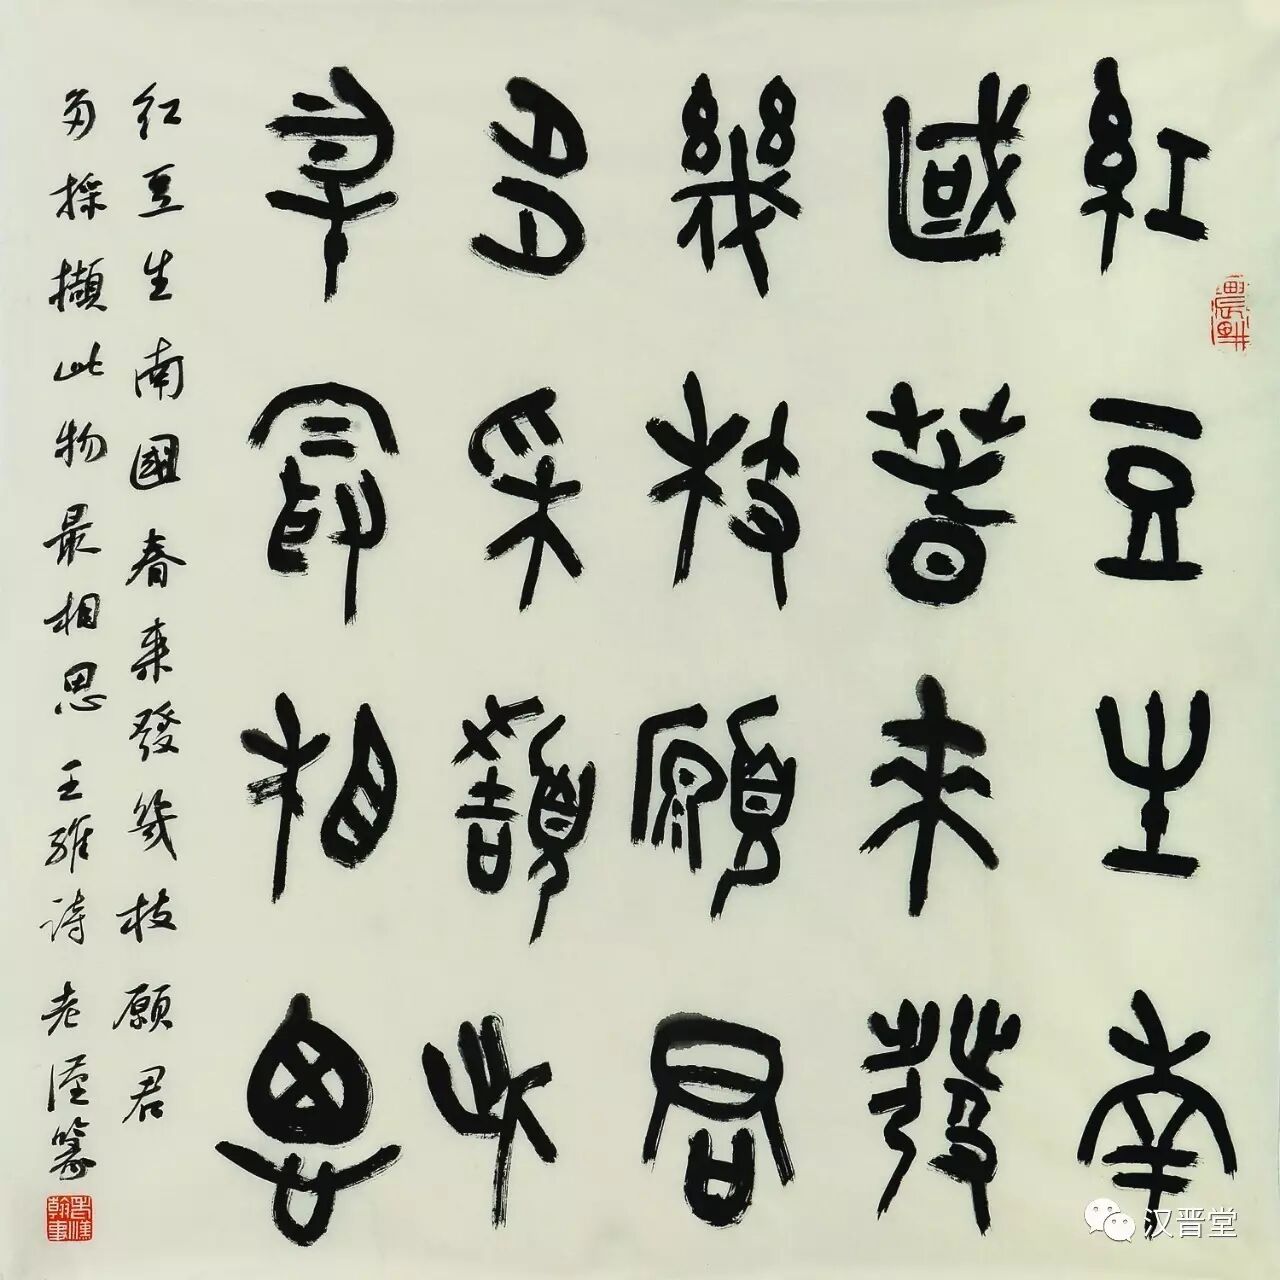 紅豆生南
國春來發
幾枝願君
多采擷此
物最相思
紅豆生南國春来發幾枝願君
多採擷此物最相思 王維詩 老漢篆
汉晋堂